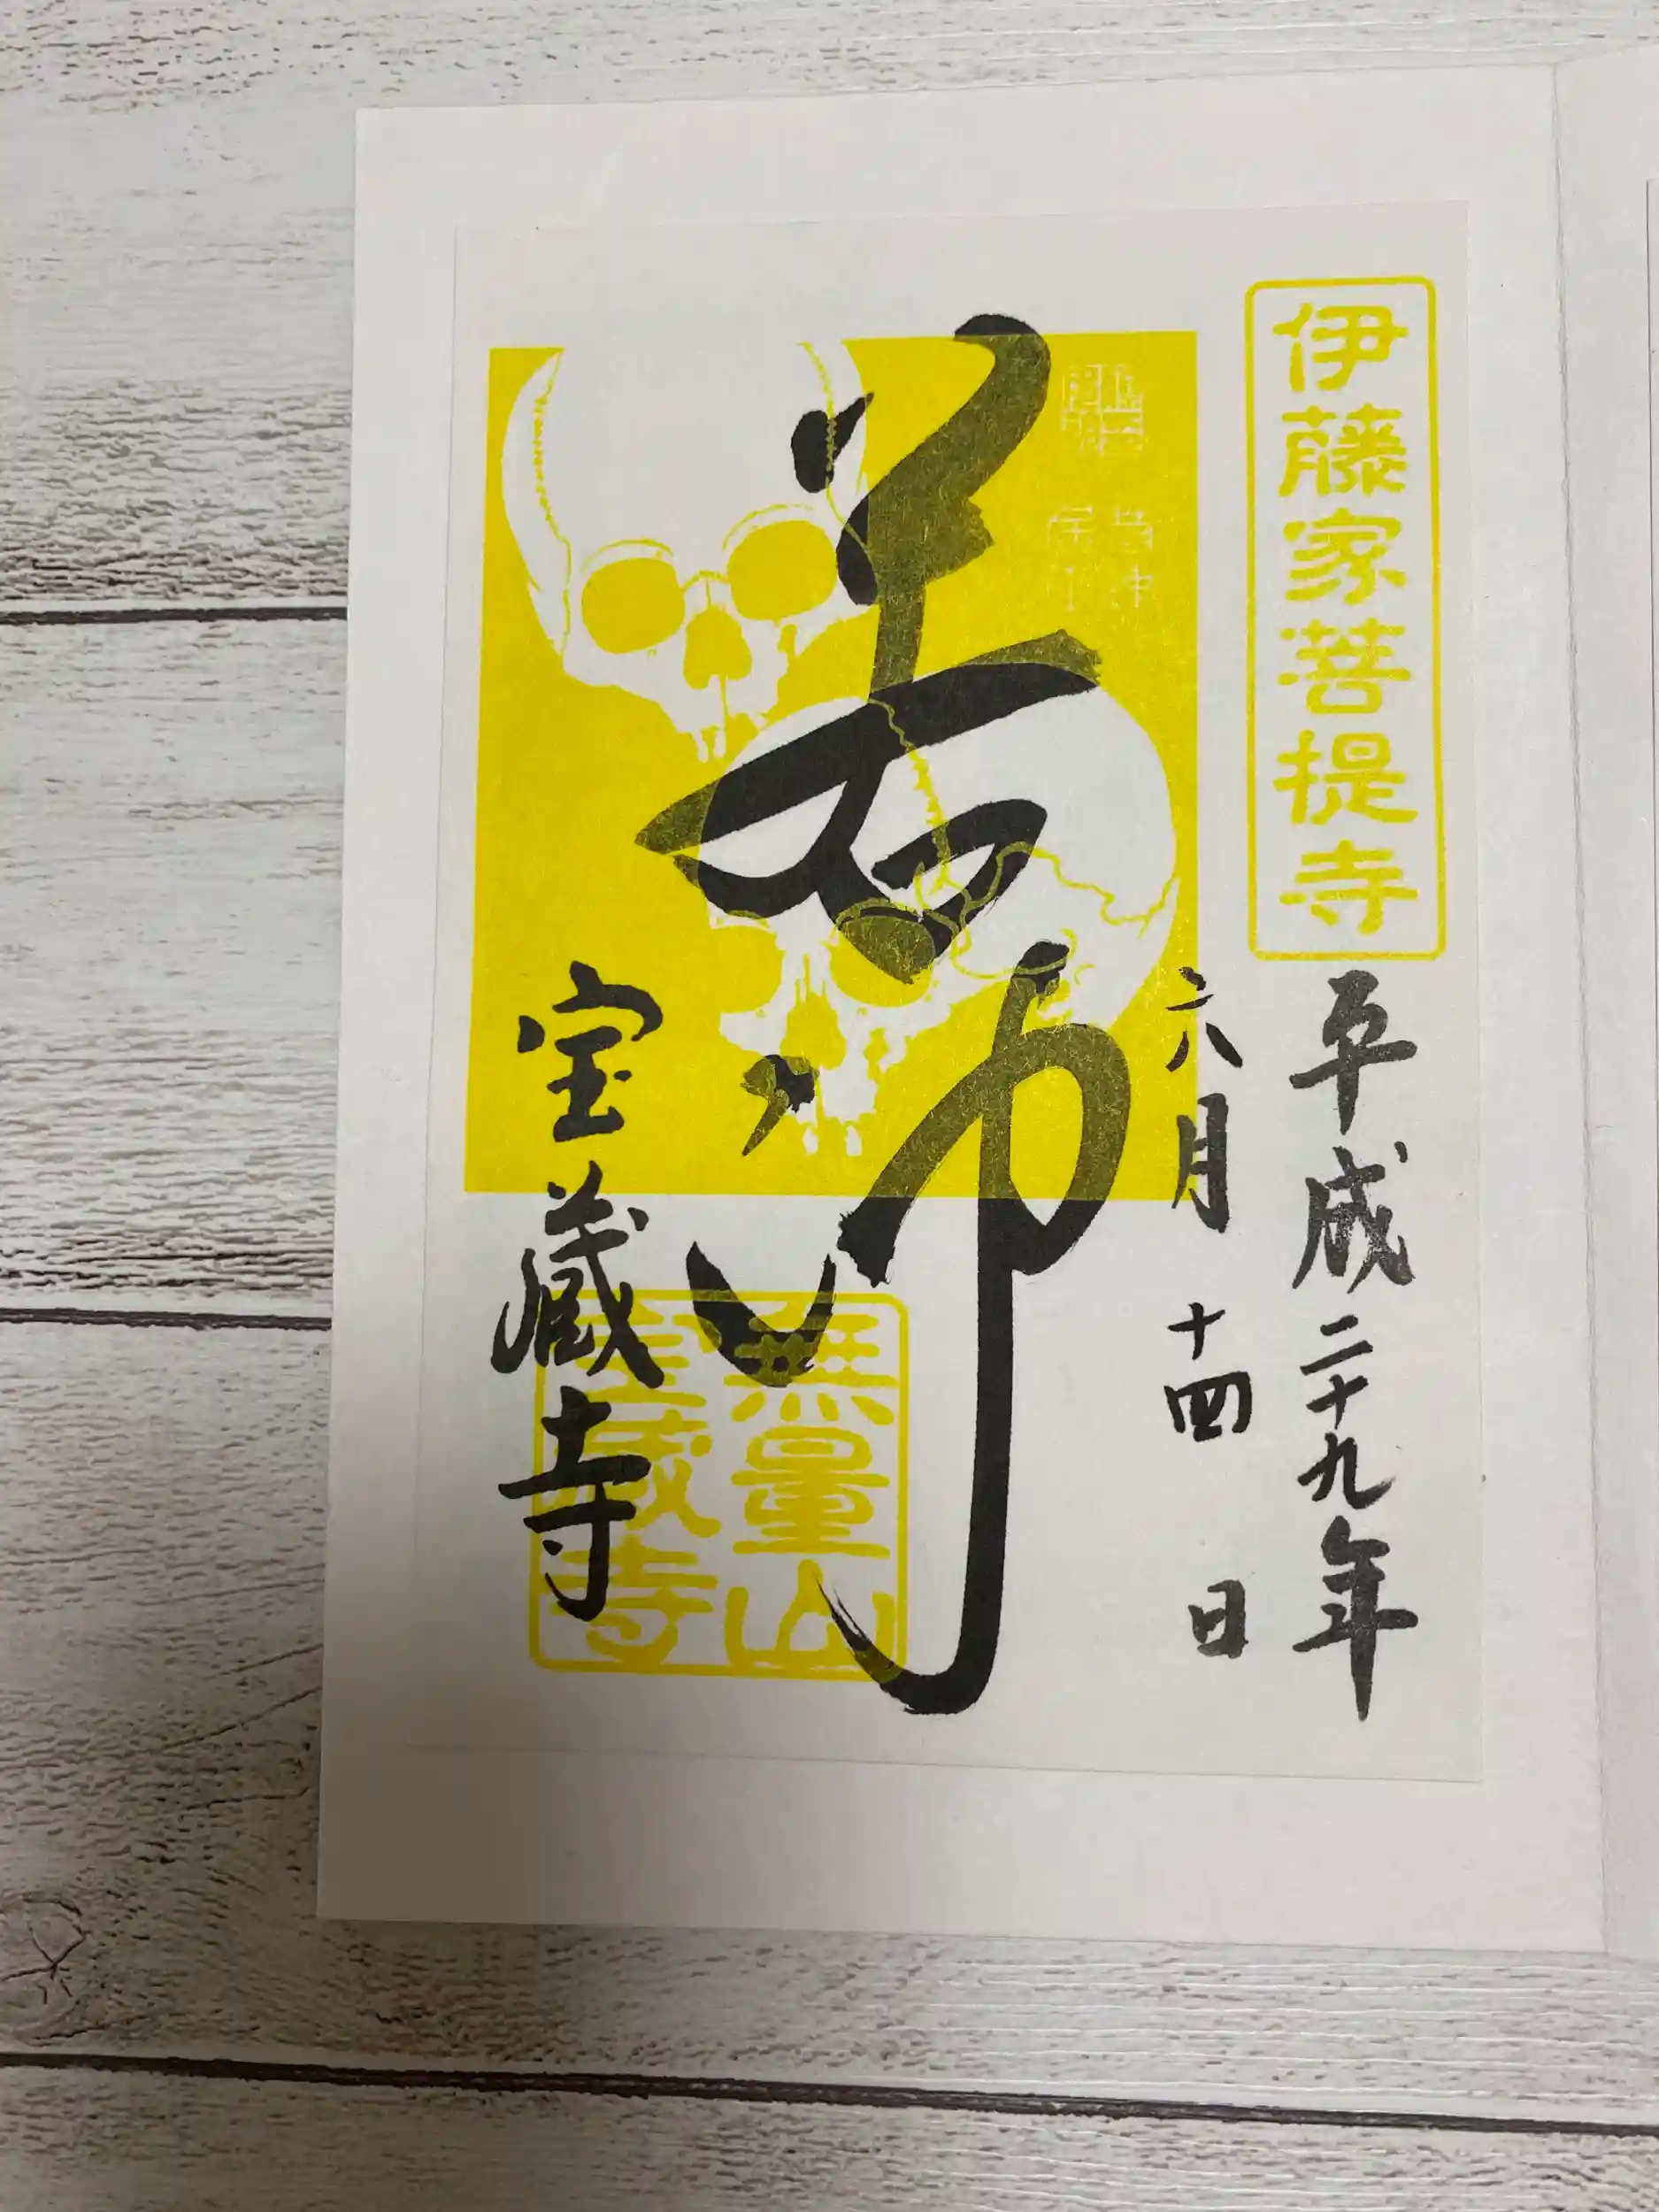 伊藤家菩提寺
平成二十九年
六月十四日
若冲
無量山
宝蔵寺
宝蔵寺